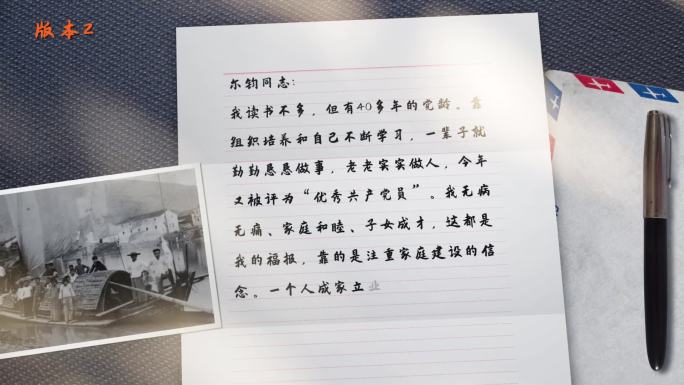 版本2
尔钧同志：
我读书不多，但有40多年的党龄。靠
组织培养和自己不断学习，一辈子就
勤勤恳恳做事，老老实实做人，今年
又被评为“优秀共产党员”。我无病
无痛、家庭和睦、子女成才，这都是
我的福报，靠的是注重家庭建设的信
念。一个人成家立业